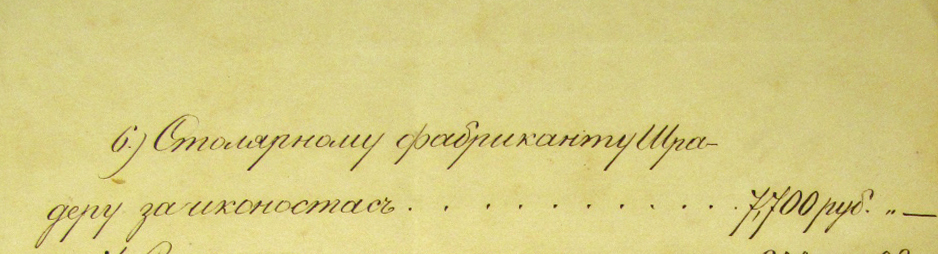 6.) Столярному фабриканту Шра-
деру за иконостасъ. . . . . . . . . . . . 7,700 руб. „ —